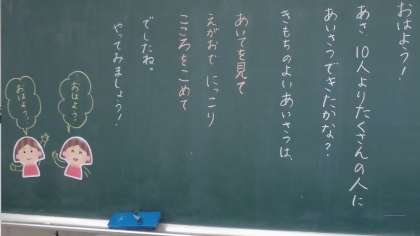 おはよう！
あさ、10人よりたくさんの人に
あいさつできたかな？
きもちのよいあいさつは、
あいてを見て
えがおで にっこり
こころをこめて
でしたね。
やってみましょう！
おはよう。
おはよう。